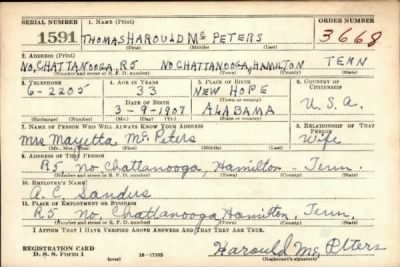 SERIAL NUMBER 1. NAME (Print) ORDER NUMBER
1591 THOMAS HAROULD Mc PETERS 3668
(First) (Middle) (Last)
2. ADDRESS (Print)
NO, CHATTANOOGA, R5 NO CHATTANOOGA, HAMILTON TENN
(Number and street or R. F. D. number) (Town) (County) (State)
3. TELEPHONE 4. AGE IN YEARS 5. PLACE OF BIRTH 6. COUNTRY OF CITIZENSHIP
6-2205 33 NEW HOPE
DATE OF BIRTH (Town or county) U.S.A.
3-9-1907 ALABAMA
(Exchange) (Number) (Mo.) (Day) (Yr.) (State or country)
7. NAME OF PERSON WHO WILL ALWAYS KNOW YOUR ADDRESS 8. RELATIONSHIP OF THAT PERSON
Mrs Mayetta Mc Peters Wife
(Mr., Mrs., Miss) (First) (Middle) (Last)
9. ADDRESS OF THAT PERSON
R5 no Chattanooga, Hamilton Tenn.
(Number and street or R. F. D. number) (Town) (County) (State)
10. EMPLOYER'S NAME
A.C. Sanders
11. PLACE OF EMPLOYMENT OR BUSINESS
R5 no. Chattanooga Hamilton, Tenn.
(Number and street or R. F. D. number) (Town) (County) (State)
I AFFIRM THAT I HAVE VERIFIED ABOVE ANSWERS AND THAT THEY ARE TRUE.
REGISTRATION CARD
D. S. S. FORM 1 (over) Harould Mc Peters
(Registrant's signature)